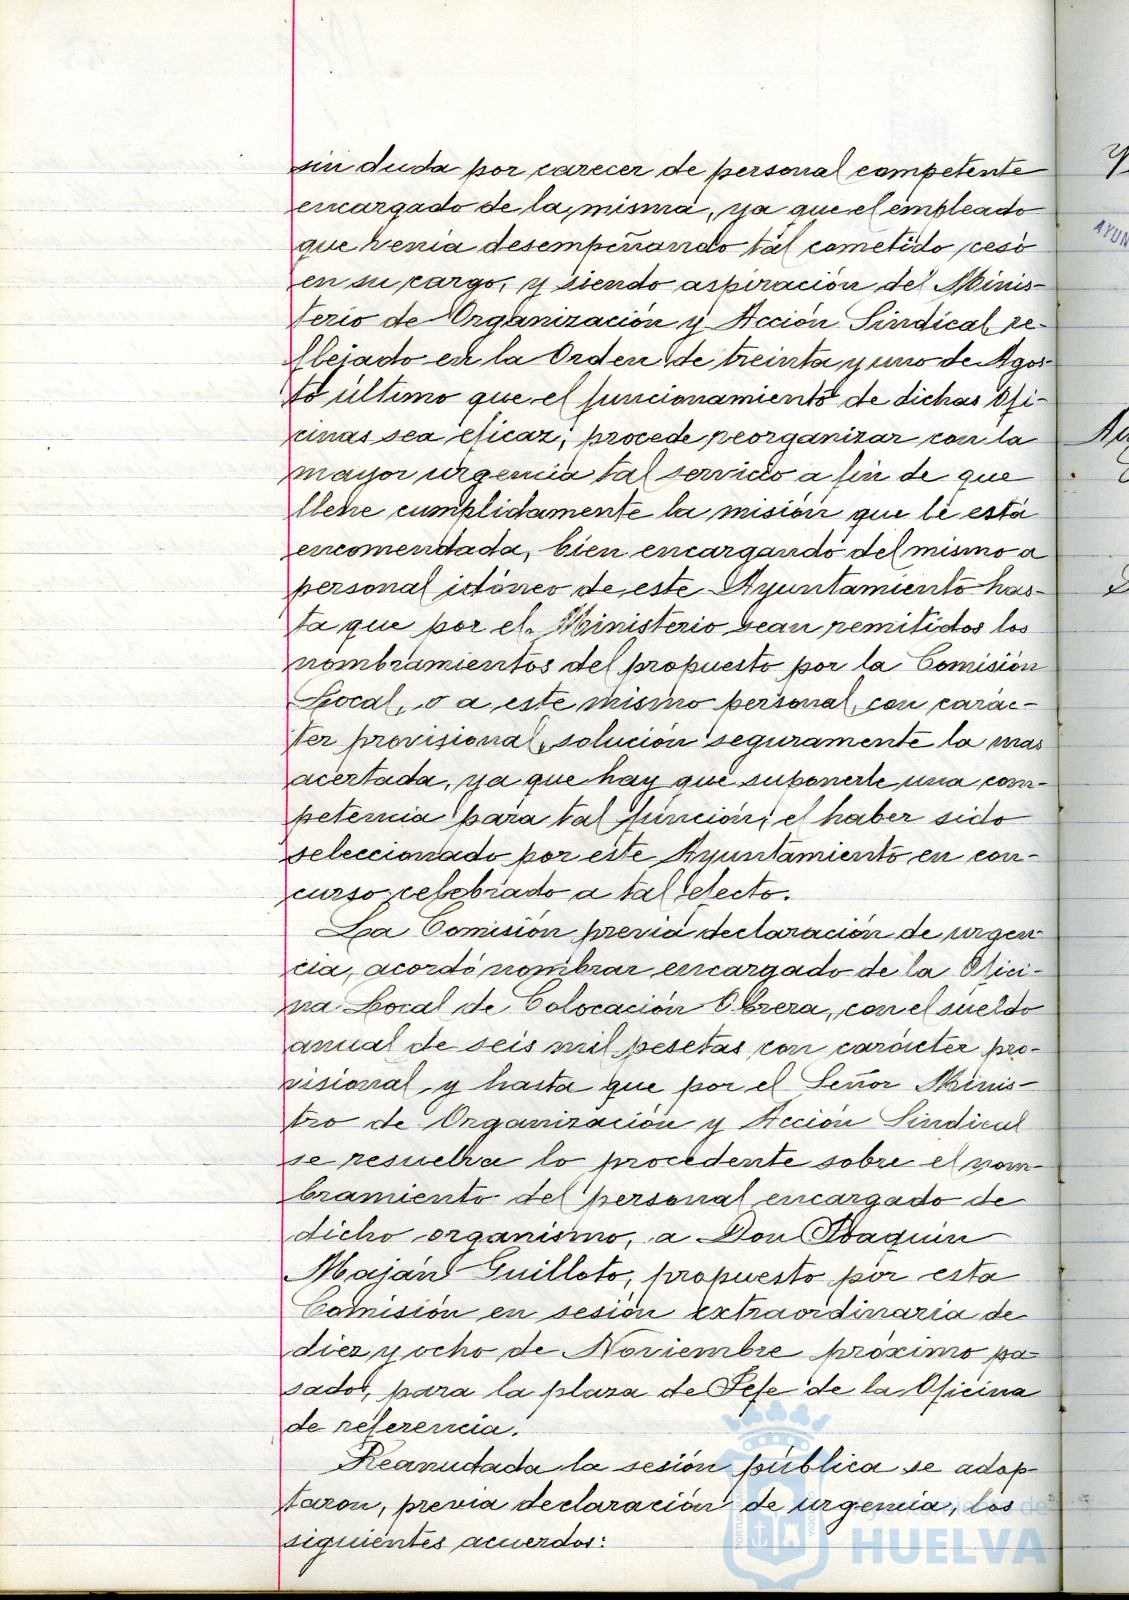 sin duda por carecer de personal competente
encargado de la misma, ya que el empleado
que venia desempeñando tal cometido cesó
en su cargo, y siendo aspiración del Minis-
terio de Organización y Acción Sindical re-
flejado en la Orden de treinta y uno de Agos-
to último que el funcionamiento de dichas Ofi-
cinas sea eficaz, procede reorganizar con la
mayor urgencia tal servicio a fin de que
llene cumplidamente la misión que le está
encomendada, bien encargando del mismo a
personal idóneo de este Ayuntamiento has-
ta que por el Ministerio sean remitidos los
nombramientos del propuesto por la Comisión
Local, o a este mismo personal, con carác-
ter provisional, solución seguramente la mas
acertada, ya que hay que suponerle una com-
petencia para tal función, el haber sido
seleccionado por este Ayuntamiento en con-
curso celebrado a tal efecto.
La Comisión previa declaración de urgen-
cia, acordó nombrar encargado de la Ofici-
na Local de Colocación Obrera, con el sueldo
anual de seis mil pesetas con carácter pro-
visional y hasta que por el Señor Minis-
tro de Organización y Acción Sindical
se resuelva lo procedente sobre el nom-
bramiento del personal encargado de
dicho organismo, a Don Joaquín
Maján Guilloto, propuesto por esta
Comisión en sesión extraordinaria de
diez y ocho de Noviembre próximo pa-
sado, para la plaza de Jefe de la Oficina
de referencia.
Reanudada la sesión pública se adop-
taron, previa declaración de urgencia, los
siguientes acuerdos:
Ayuntamiento de
HUELVA